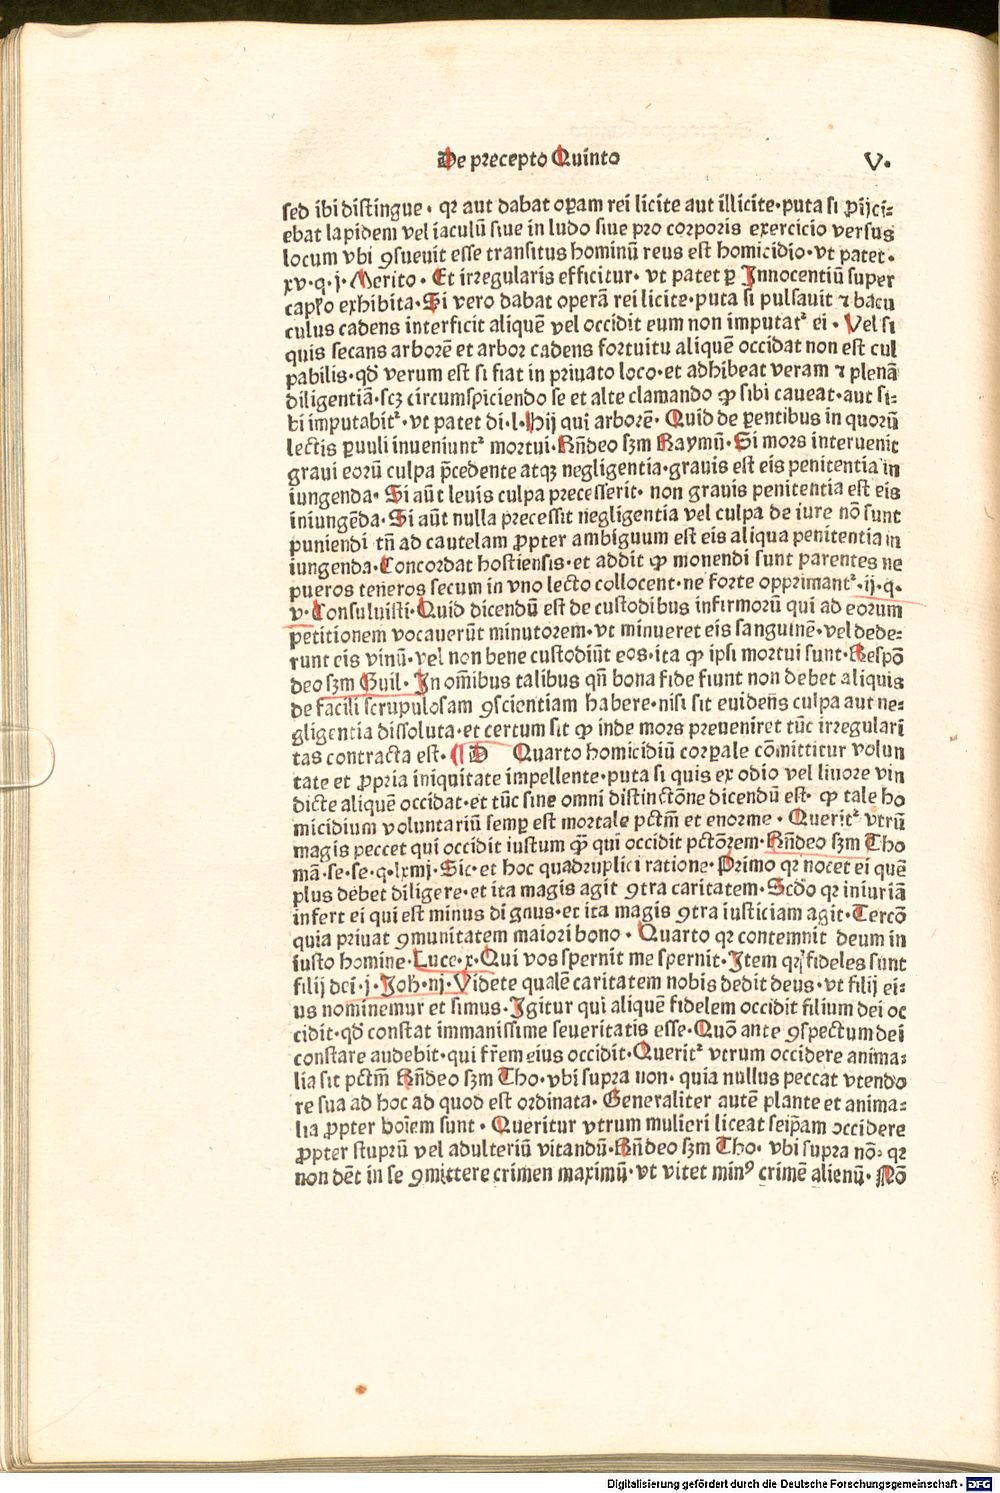 De precepto Quinto V.
sed ibi distingue · qꝛ aut dabat oꝑam rei licite aut illicite·puta si ꝓijci⸗
ebat lapidem vel iaculū siue in ludo siue pro corporis exercicio versus
locum vbi ꝯsueuit esse transitus hominū reus est homicidio·vt patet·
xv·q·j·Merito· Et irregularis efficitur· vt patet ꝑ Innocentiū super
cap̄lo exhibita·Si vero dabat operā rei licite·puta si pulsauit ⁊ bacu
culus cadens interficit aliquē vel occidit eum non imputat᷑ ei · Vel si
quis secans arborē et arbor cadens fortuitu aliquē occidat non est cul
pabilis·qd̄ verum est si fiat in priuato loco·et adhibeat veram ⁊ plenā
diligentiā·scꝫ circumspiciendo se et alte clamando ꝙ sibi caueat·aut si⸗
bi imputabit᷑·vt patet di·l·hij qui arborē· Quid de ꝑentibus in quorū
lectis ꝑuuli inueniunt᷑ mortui·Rn̄deo sꝫm Raymū·Si mors interuenit
graui eorū culpa p̄cedente atqꝫ negligentia·grauis est eis penitentia in
iungenda· Si aūt leuis culpa precesserit· non grauis penitentia est eis
iniungēda·Si aūt nulla precessit negligentia vel culpa de iure nō sunt
puniendi tn̄ ad cautelam ꝓpter ambiguum est eis aliqua penitentia in
iungenda·Concordat hostiensis·et addit ꝙ monendi sunt parentes ne
pueros teneros secum in vno lecto collocent·ne forte opprimant᷑·ij·q·
v·Consuluisti·Quid dicendū est de custodibus infirmorū qui ad eorum
petitionem vocauerūt minutorem·vt minueret eis sanguinē·vel dede⸗
runt eis vinū·vel non bene custodiūt eos·ita ꝙ ipsi mortui sunt·Respō
deo sꝫm Guil· In om̄ibus talibus qn̄ bona fide fiunt non debet aliquis
de facili scrupulosam ꝯscientiam habere·nisi sit euidens culpa aut ne⸗
gligentia dissoluta·et certum sit ꝙ inde mors preueniret tūc irregulari
tas contracta est·¶ D Quarto homicidiū corꝑale cōmittitur volun
tate et ꝓpria iniquitate impellente·puta si quis ex odio vel liuore vin
dicte aliquē occidat·et tūc sine omni distinctōne dicendū est· ꝙ tale ho
micidium voluntariū semꝑ est mortale pctm̄ et enorme · Querit᷑ vtrū
magis peccet qui occidit iustum ꝙ̄ qui occidit pctōrem·Rn̄deo sꝫm Tho
mā·se·se·q·lxmj·Sic·et hoc quadruplici ratione·Primo qꝛ nocet ei quē
plus debet diligere·et ita magis agit ꝯtra caritatem·Scd̄o qꝛ iniuriā
infert ei qui est minus dignus·et ita magis ꝯtra iusticiam agit·Tercō
quia priuat ꝯmunitatem maiori bono · Quarto qꝛ contemnit deum in
iusto homine·Luce·x·Qui vos spernit me spernit·Item qꝛ fideles sunt
filij dei·j·Joh·nj·Videte qualē caritatem nobis dedit deus·vt filij ei⸗
us nominemur et simus·Igitur qui aliquē fidelem occidit filium dei oc
cidit·qd̄ constat immanissime seueritatis esse·Quō ante ꝯspectum dei
constare audebit·qui fr̄em eius occidit·Querit᷑ vtrum occidere anima⸗
lia sit pctm̄ Rn̄deo sꝫm Tho·vbi supra non· quia nullus peccat vtendo
re sua ad hoc ad quod est ordinata· Generaliter autē plante et anima⸗
lia ꝓpter hoīem sunt · Queritur vtrum mulieri liceat seip̄am occidere
ꝓpter stuprū vel adulteriū vitandū·Rn̄deo sꝫm Tho· vbi supra nō· qꝛ
non dēt in se ꝯmittere crimen maximū·vt vitet minꝰ crimē alienū· Nō
Digitalisierung gefördert durch die Deutsche Forschungsgemeinschaft · DFG